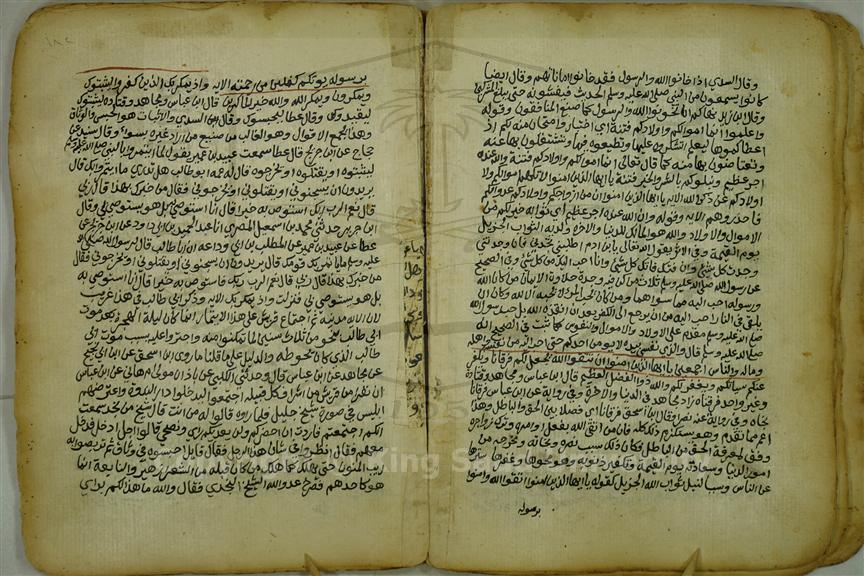 وقال السدي اذا خانوا الله والرسول فقد خانوا اماناتهم وقال ايضا
كانوا يسمعون من النبي صلى الله عليه وسلم الحديث فيفشونه حتى يبلغ المشركين
وقال ابن زيد نهاكم ان تخونوا الله والرسول كما صنع المنافقون وقوله
واعلموا انما اموالكم واولادكم فتنة اي اختبار وامتحان منه لكم اذ
اعطاكموها ليعلم اتشكرونه عليها وتطيعونه فيها وتشتغلون بها عنه
وتعتاضون بها منه كما قال تعالى انما اموالكم واولادكم فتنة والله عنده
اجر عظيم ونبلوكم بالشر والخير فتنة يا ايها الذين امنوا لا تلهكم اموالكم ولا
اولادكم عن ذكر الله الاية يا ايها الذين امنوا ان من ازواجكم واولادكم عدوا لكم
فاحذروهم الاية وقوله وان الله عنده اجر عظيم اي ثوابه خير لكم من
الاموال والاولاد والله هو المالك للدنيا والاخرة ولديه الثواب الجزيل
يوم القيمة وفي الاثر يقول الله تعالى يا ابن ادم اطلبني تجدني فان وجدتني
وجدت كل شيء وان فتك فاتك كل شيء وانا احب اليك من كل شيء وفي الصحيح
عن رسول الله صلى الله عليه وسلم ثلاث من كن فيه وجد حلاوة الايمان من كان الله
ورسوله احب اليه مما سواهما ومن كان يحب المرء لا يحبه الا لله وكان ان
يلقى في النار احب اليه من ان يرجع الى الكفر بعد ان انقذه الله بل حب رسول الله
صلى الله عليه وسلم مقدم على الاولاد والاموال والنفوس كما ثبت في الصحيح انه
صلى الله عليه وسلم قال والذي نفسي بيده لا يؤمن احدكم حتى اكون احب اليه من نفسه واهله
وماله والناس اجمعين يا ايها الذين امنوا ان تتقوا الله يجعل لكم فرقانا ويكفر
عنكم سيئاتكم ويغفر لكم والله ذو الفضل العظيم قال ابن عباس ومجاهد وقتادة
وغير واحد فرقانا زاد مجاهد في الدنيا والاخرة وفي رواية عن ابن عباس فرقانا
نجاة وفي رواية عنه نصرا وقال ابن اسحق فرقانا اي فصلا بين الحق والباطل وهذا
اعم مما تقدم وهو يستلزم ذلك كله فان من اتقى الله بفعل اوامره وترك زواجره
وفق لمعرفة الحق من الباطل فكان ذلك سبب نصره ونجاته ومخرجه من
امور الدنيا وسعادته يوم القيمة وتكفير ذنوبه وهو محوها وغفرها سترها
عن الناس وسببا لنيل ثواب الله الجزيل كقوله يا ايها الذين امنوا اتقوا الله وامنوا
برسوله
برسوله يوتكم كفلين من رحمته الاية واذ يمكر بك الذين كفروا ليثبتوك
ويمكرون ويمكر الله والله خير الماكرين قال ابن عباس ومجاهد وقتادة ليثبتوك
ليقيدوك وقال عطا ليحبسوك وقال السدي والاثبات هو الحبس والوثاق
وهذا يجمع الاقوال وهو الغالب من صنيع من اراد غيره بسوء وقال سنيد عن
حجاج عن ابن جريج قال عطا سمعت عبيد بن عمير يقول لما ائتمروا بالنبي صلى الله عليه وسلم
ليثبتوه او يقتلوه او يخرجوه قال له عمه ابو طالب هل تدري ما ائتمروا بك قال
يريدون ان يسجنوني او يقتلوني او يخرجوني فقال من خبرك بهذا قال ربي
قال نعم الرب ربك استوص به خيرا قال انا استوصي به بل هو يستوصي بي وقال
ابن جرير حدثني محمد بن اسمعيل المصري انا عبد المجيد بن ابي رواد عن ابن جريج عن
عطا عن عبيد بن عمير عن المطلب بن ابي وداعه ان ابا طالب قال لرسول الله صلى الله
عليه وسلم ما ياتمر بك قومك قال يريدون ان يسجنوني او يقتلوني او يخرجوني فقال
من خبرك بهذا قال ربي قال نعم الرب ربك فاستوص به خيرا قال انا استوصي به
بل هو يستوصي بي فنزلت واذ يمكر بك الاية وذكر ابي طالب في هذا غريب
لان الاية مدنية ثم اجتماع قريش على هذا الائتمار انما كان ليلة الهجرة بعد موت
ابي طالب بنحو من ثلاث سنين لما تمكنوا منه واجتروا عليه بسبب موت ابي
طالب الذي كان يحوطه والدليل على ما قلنا ما روى ابن اسحق عن ابن ابي نجيح
عن مجاهد عن ابن عباس قال وحدثني الكلبي عن باذان مولى ام هاني عن ابن عباس
ان نفرا من قريش من اشراف كل قبيلة اجتمعوا ليدخلوا دار الندوة واعترضهم
ابليس في صورة شيخ جليل فلما راوه قالوا له من انت قال شيخ من نجد سمعت
انكم اجتمعتم فاردت ان احضركم ولن يعدمكم رايي ونصحي قالوا اجل ادخل فدخل
معهم وقال انظروا في شان هذا الرجل فقال قايل احبسوه في وثاق ثم تربصوا به
ريب المنون حتى يهلك كما هلك من كان قبله من الشعرا زهير والنابغة انما
هو كاحدهم فصرخ عدو الله الشيخ النجدي فقال والله ما هذا لكم براي